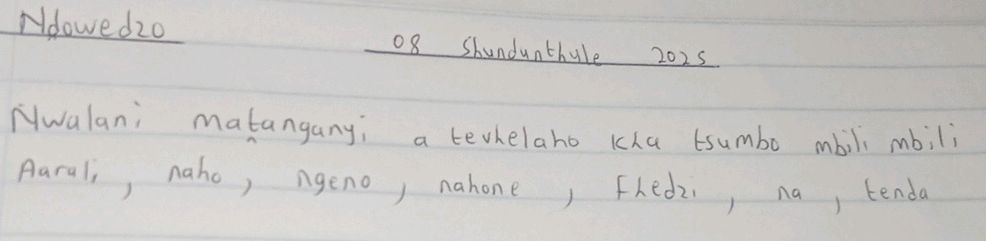 Ndowedzo
08 Shundunthule 2025
Nwalani maṱanganyi a tevhelaho kha tsumbo mbili mbili
Aarali, naho, ngeno, nahone, Fhedzi, na, tenda